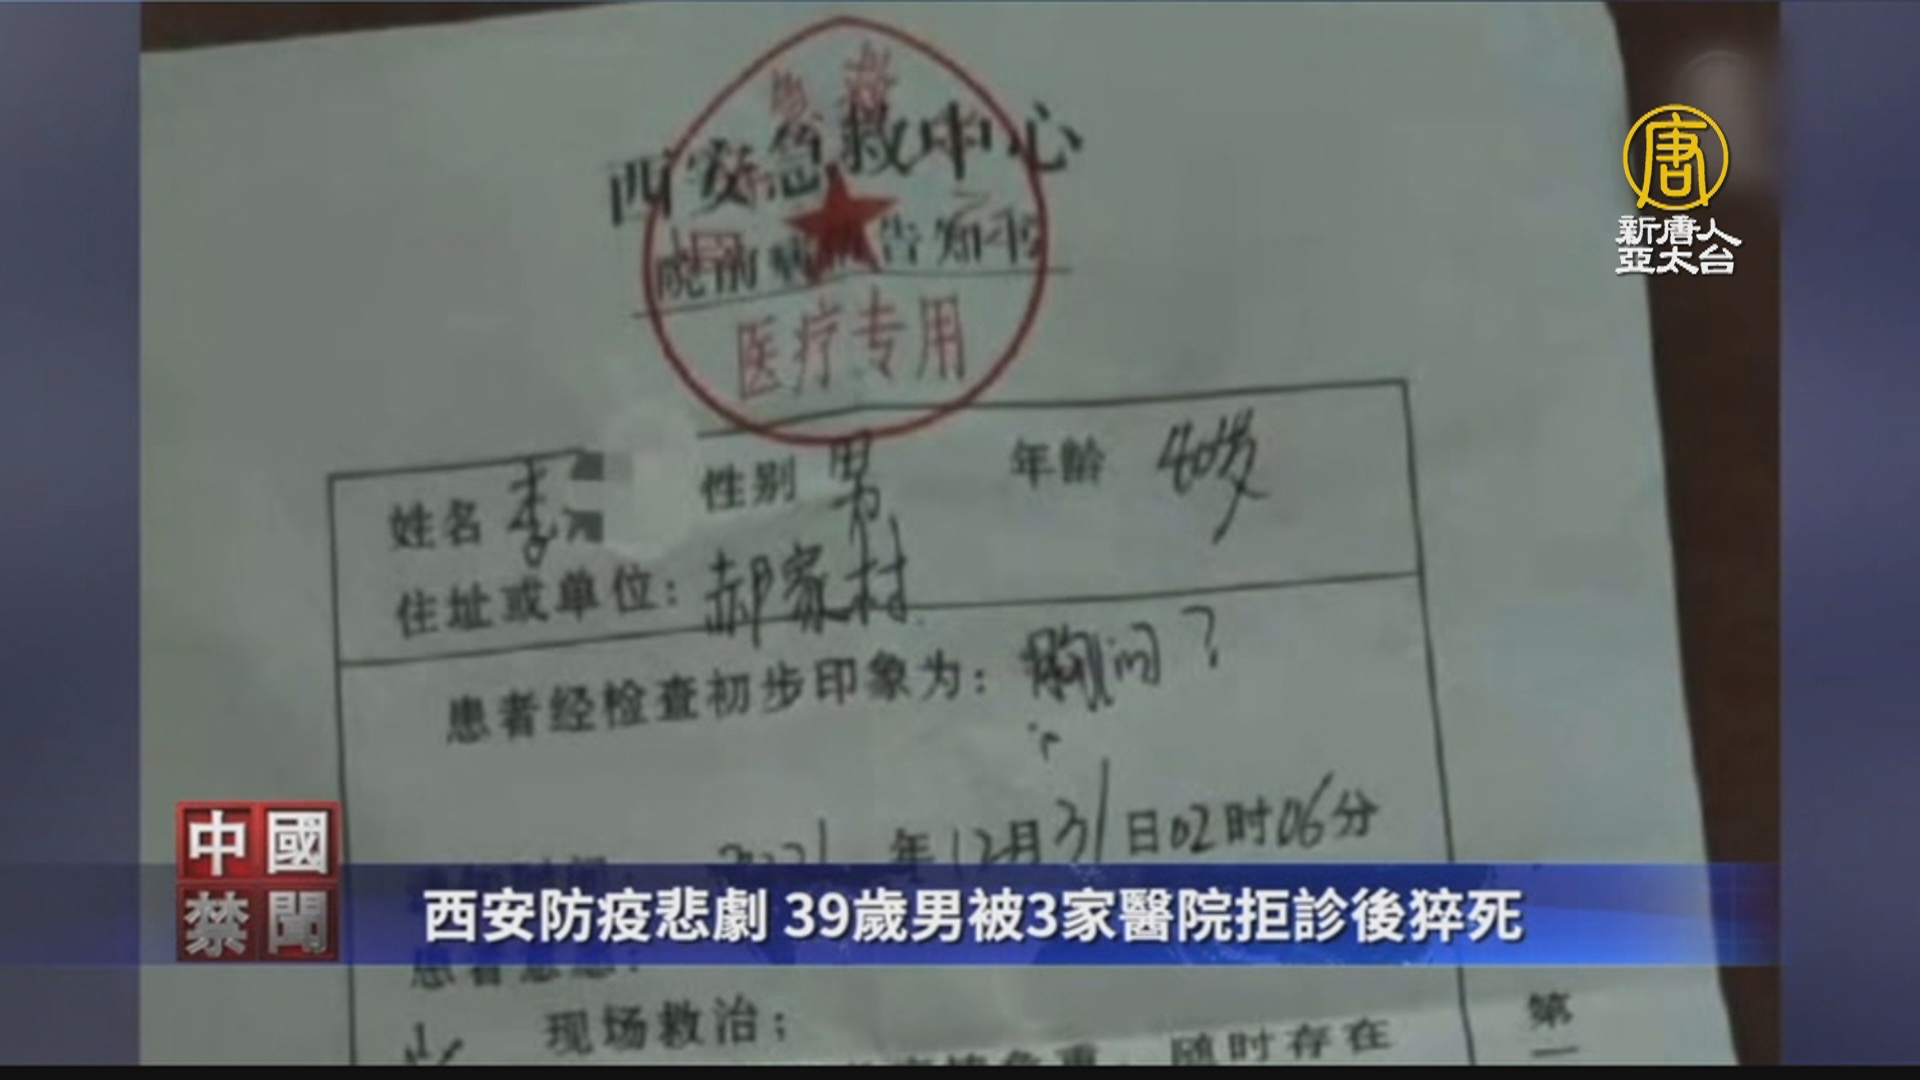 急救
西安急救中心
院前病情告知书
医疗专用
唐
新唐人
亞太台
姓名 李 性别 男 年龄 40岁
住址或单位：郝家村
患者经检查初步印象为：胸闷？
2021年12月31日02时06分
中國
禁聞
西安防疫悲劇 39歲男被3家醫院拒診後猝死
现场救治；
随时存在
第
一